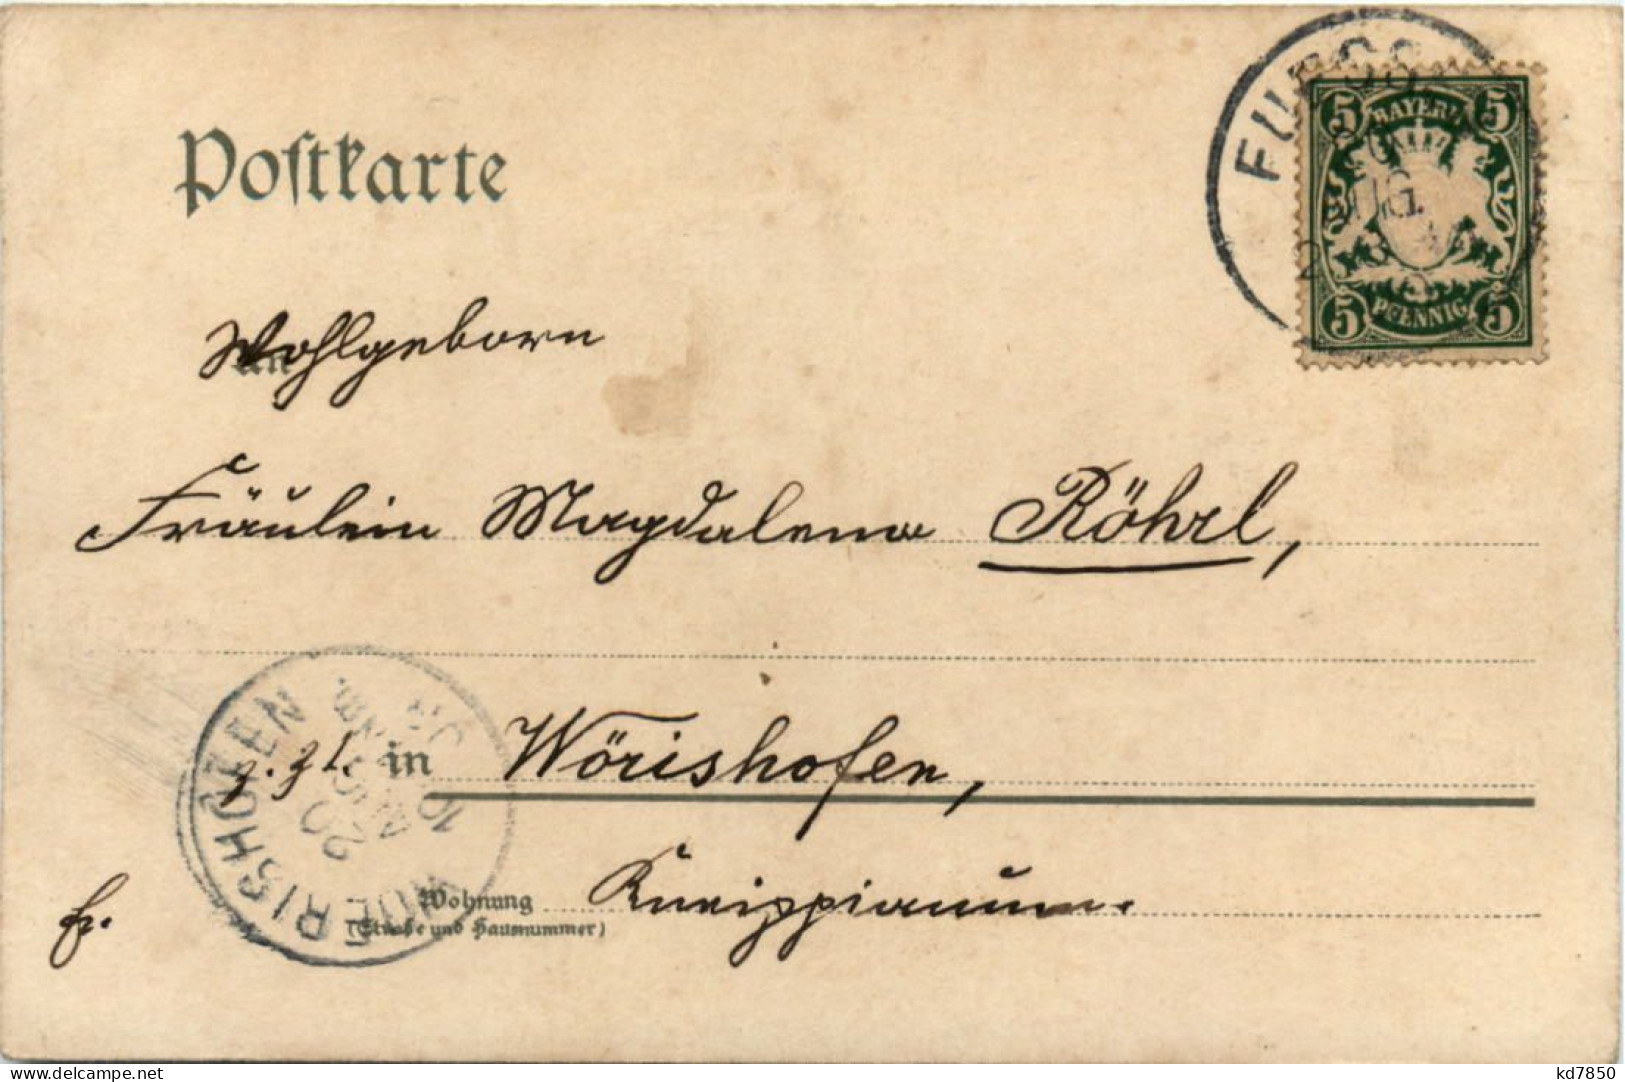 Postkarte
BAYERN
5 5
5 5
PFENNIG
An
Wohlgeborn
Fräulein Magdalena Röhrl,
z. Zt. in Wörishofen,
WOERISHOFEN
20
10
Wohnung Kneippianum.
(Straße und Hausnummer)
fr.
kd7850